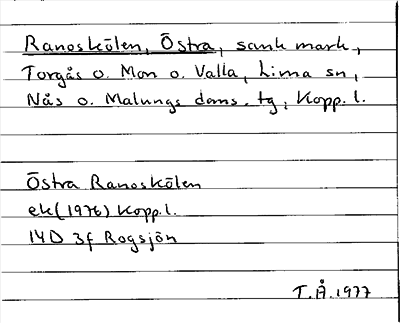 Ranoskölen, Östra, sank mark,
Torgås o. Mon o. Valla, Lima sn,
Nås o. Malungs doms. tg, Kopp. l.
Östra Ranoskölen
ek (1976) Kopp. l.
14D 3f Rogsjön
T.Å. 1977